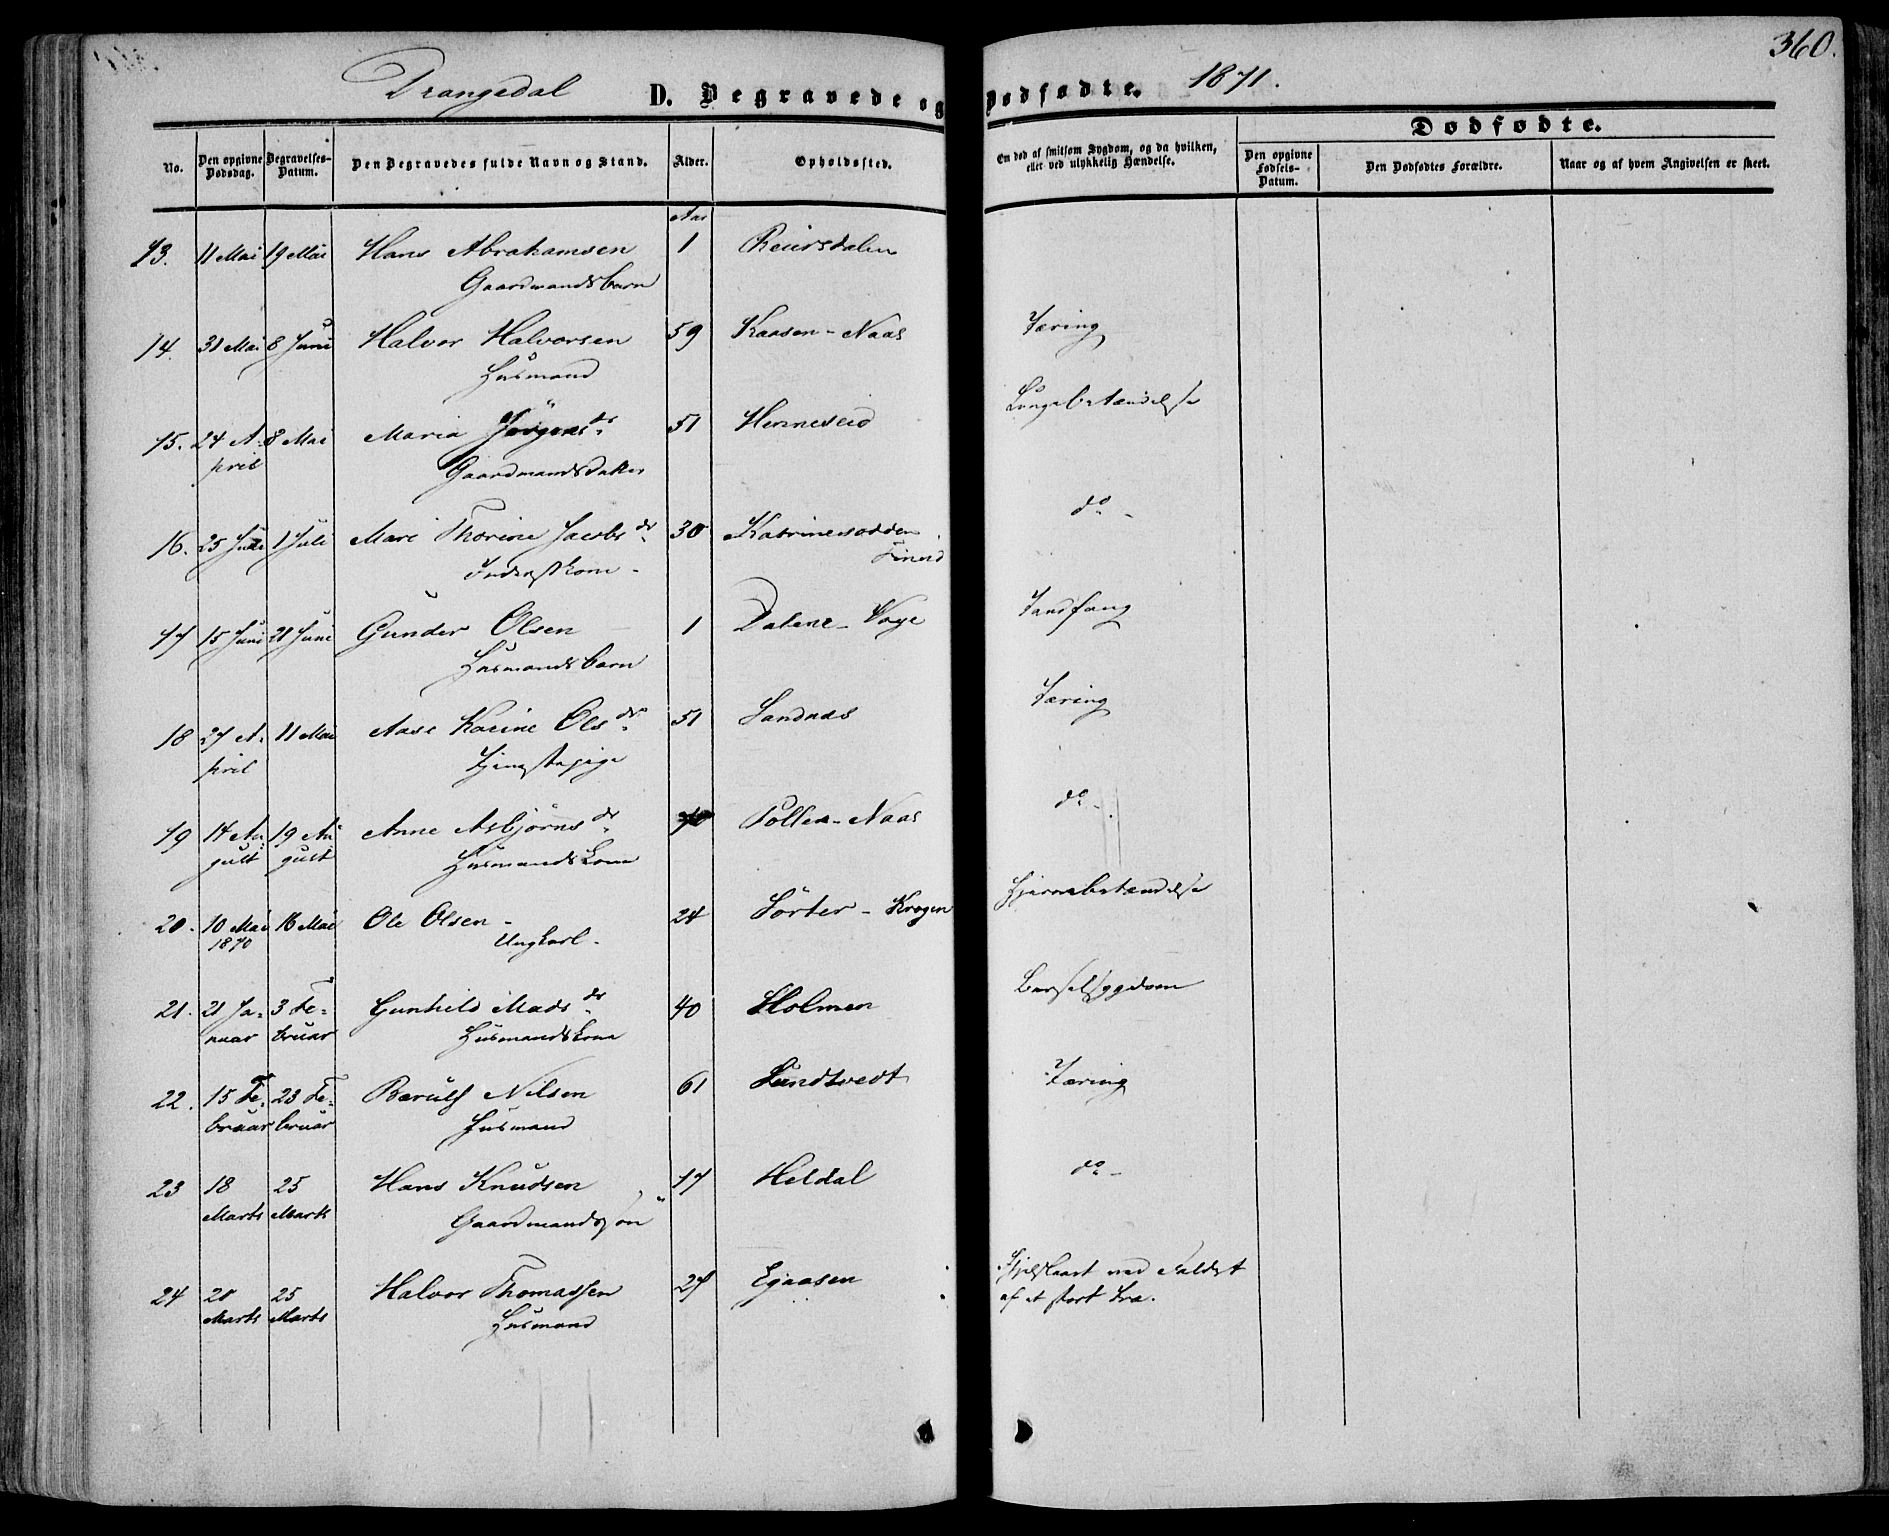 360.
Drangedal D. Begravede og Dødfødte. 1871.
Dødfødte.
No. Den opgivne Dødsdag. Begravelses-Datum. Den Begravedes fulde Navn og Stand. Alder. Opholdssted. Om død af smitsom Sygdom, og da hvilken, eller ved ulykkelig Hændelse. Den opgivne Fødsels-Datum. Den Dødfødtes Forældre. Naar og af hvem Angivelsen er skeet.
Aar
13. 11 Mai 19 Mai Hans Abrahamsen 1
Gaardmandsbarn
14. 31 Mai 8 Juni Halvor Halvorsen 59 Kaasen-Naas Tæring
Husmand
15. 24 A- 8 Mai Maria Jörgensdr 51 Henneseid Lungebetændelse
pril Gaardmandsdatter
16. 25 Juni 1 Juli Mari Thorine Jacobsdr 30 Katrinesodden do -
Inderstkone -
17 15 Juni 21 Juni Gunder Olsen 1 Dalene-Voje Tandfang
Husmandsbarn
18 27 A- 11 Mai Aase Karine Olsdr 51 Sandnæs Tæring
pril Tjenestepige
19 14 Au 19 Au Anne Asbjörnsdr Pollen-Naas do -
gust gust Husmandskone
20. 10 Mai 16 Mai Ole Olsen - 24 Törter - Krogen Hjernebetændelse
1870 Ungkarl.
21. 21 Ja- 3 Fe- Gunhild Madsdr 40 Holmen Barselsygdom
nuar bruar Husmandskone
22. 15 Fe- 23 Fe- Bærulf Nilsen 61 Lundtvedt Tæring
bruar bruar Husmand
23 18 25 Hans Knudsen 17 Heldal do -
Marts Marts Gaardmandssön
24 20 25 Halvor Thomassen 27 Egaasen Ihjelslaaet ved Faldet
Marts Marts Husmand af et stort Træ.